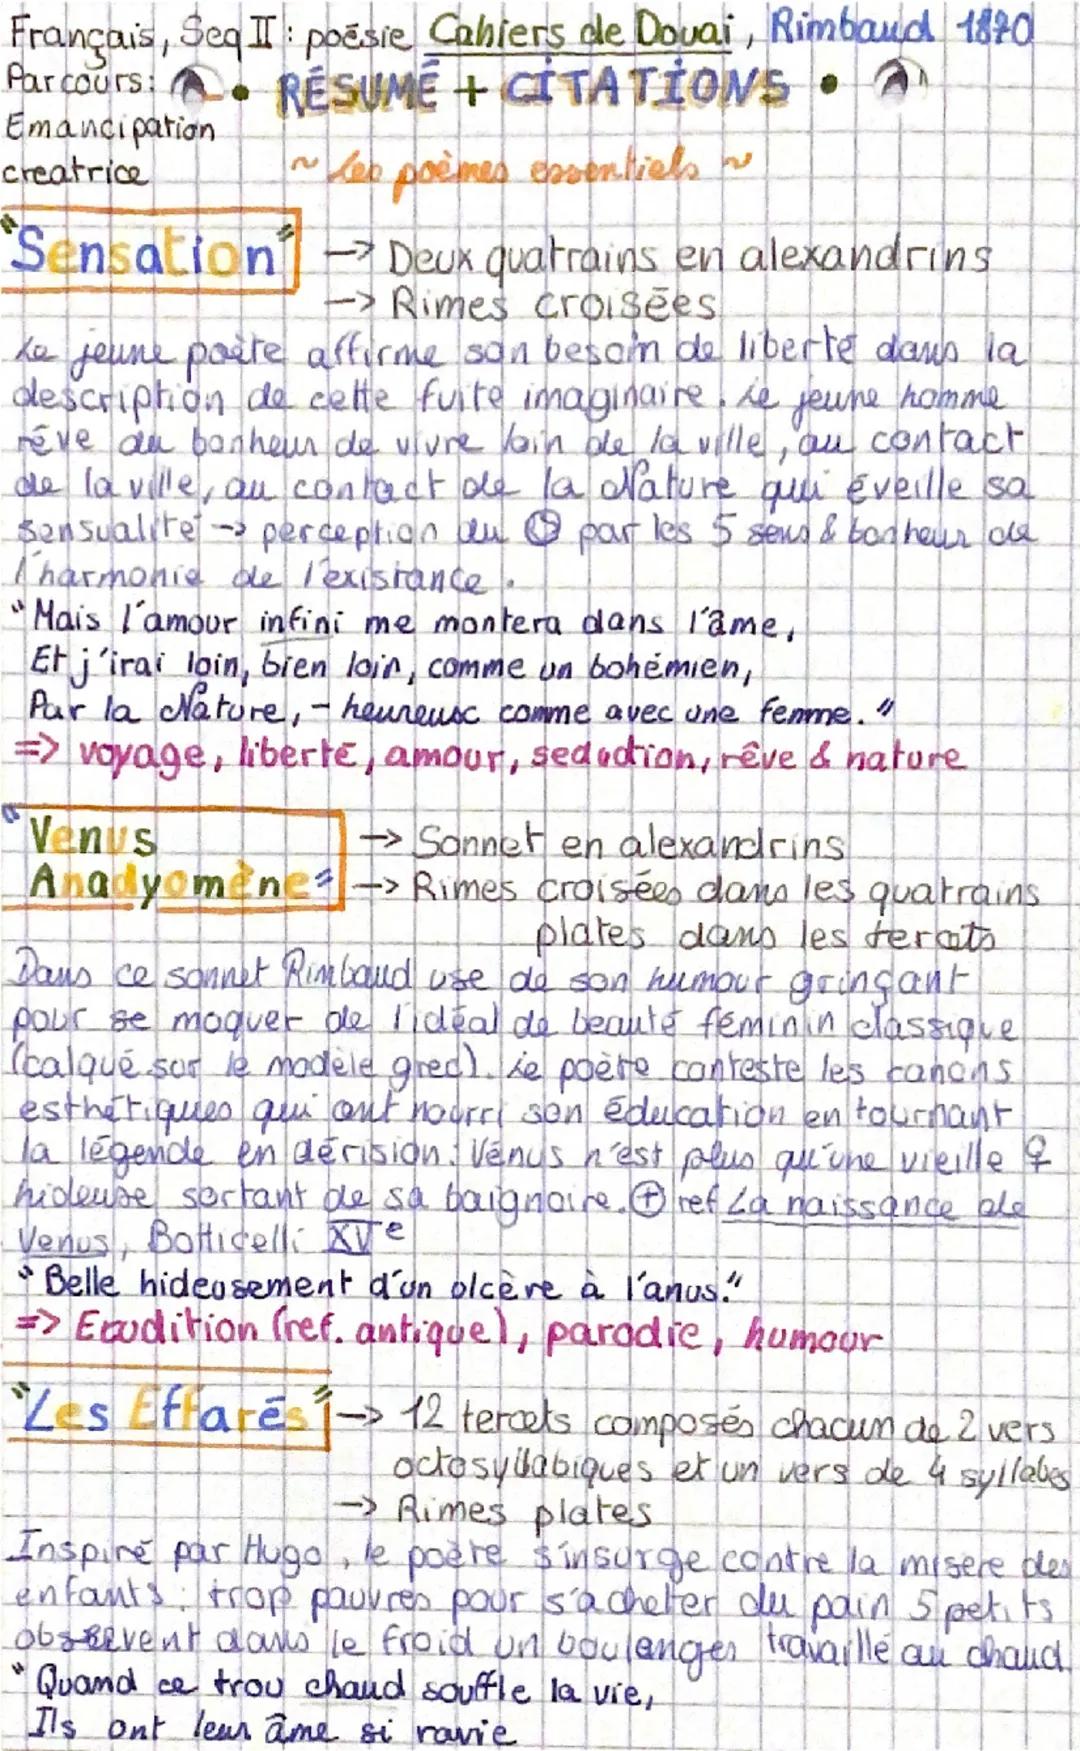 Français, Seq II : poésie Cahiers de Douai, Rimbaud 1870
Parcours : • RÉSUMÉ + CITATIONS •
Emancipation
creatrice
~ Les poèmes essentiels ~
"Sensation" -> Deux quatrains en alexandrins
-> Rimes croisées
Le jeune poète affirme son besoin de liberté dans la
description de cette fuite imaginaire. Le jeune homme
rêve du bonheur de vivre loin de la ville, au contact
de la ville, au contact de la Nature qui éveille sa
sensualité -> perception du par les 5 sens & bonheur de
l'harmonie de l'existance.
"Mais l'amour infini me montera dans l'âme,
Et j'irai loin, bien loin, comme un bohémien,
Par la Nature, - heureux comme avec une femme."
=> voyage, liberté, amour, seduction, rêve & nature
"Venus -> Sonnet en alexandrins
Anadyomène" -> Rimes croisées dans les quatrains
plates dans les tercets
Dans ce sonnet Rimbaud use de son humour grinçant
pour se moquer de l'idéal de beauté féminin classique
(calqué sur le modèle grec). Le poète conteste les canons
esthétiques qui ont nourri son éducation en tournant
la légende en dérision : Vénus n'est plus qu'une vieille ♀
hideuse sortant de sa baignoire. ⊕ ref La naissance de
Venus, Botticelli XVe
"Belle hideusement d'un olcère à l'anus."
=> Erudition (ref. antique), parodie, humour
"Les Effarés" -> 12 tercets composés chacun de 2 vers
octosyllabiques et un vers de 4 syllabes
-> Rimes plates
Inspiré par Hugo, le poète s'insurge contre la misere des
enfants : trop pauvres pour s'acheter du pain 5 petits
observent dans le froid un boulanger travaillé au chaud.
"Quand ce trou chaud souffle la vie,
Ils ont leur âme si ravie